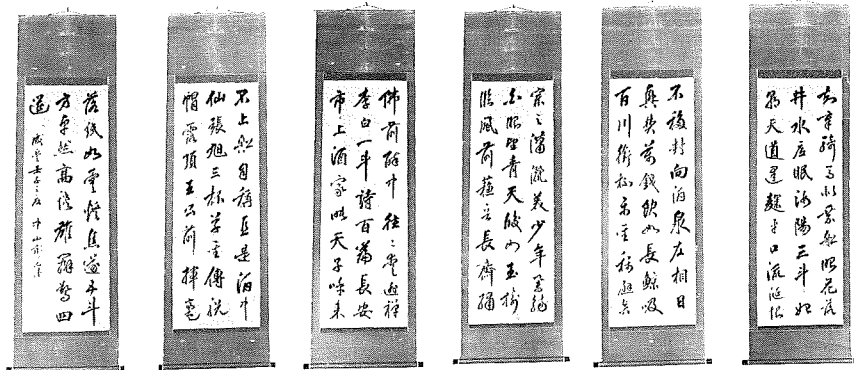 知章騎馬似乘船眼花落
井水底眠汝陽三斗始
朝天道逢麴車口流涎恨
不移封向酒泉左相日
興費萬錢飲如長鯨吸
百川銜杯樂聖稱避賢
宗之瀟灑美少年舉觴
白眼望青天皎如玉樹
臨風前蘇晉長齋繡
佛前醉中往〻愛逃禪
李白一斗詩百篇長安
市上酒家眠天子呼來
不上船自稱臣是酒中
仙張旭三杯草聖傳脱
帽露頂王公前揮毫
落紙如雲煙焦遂五斗
方卓然高談雄辯驚四
筵
咸豐壬子之夏 中山